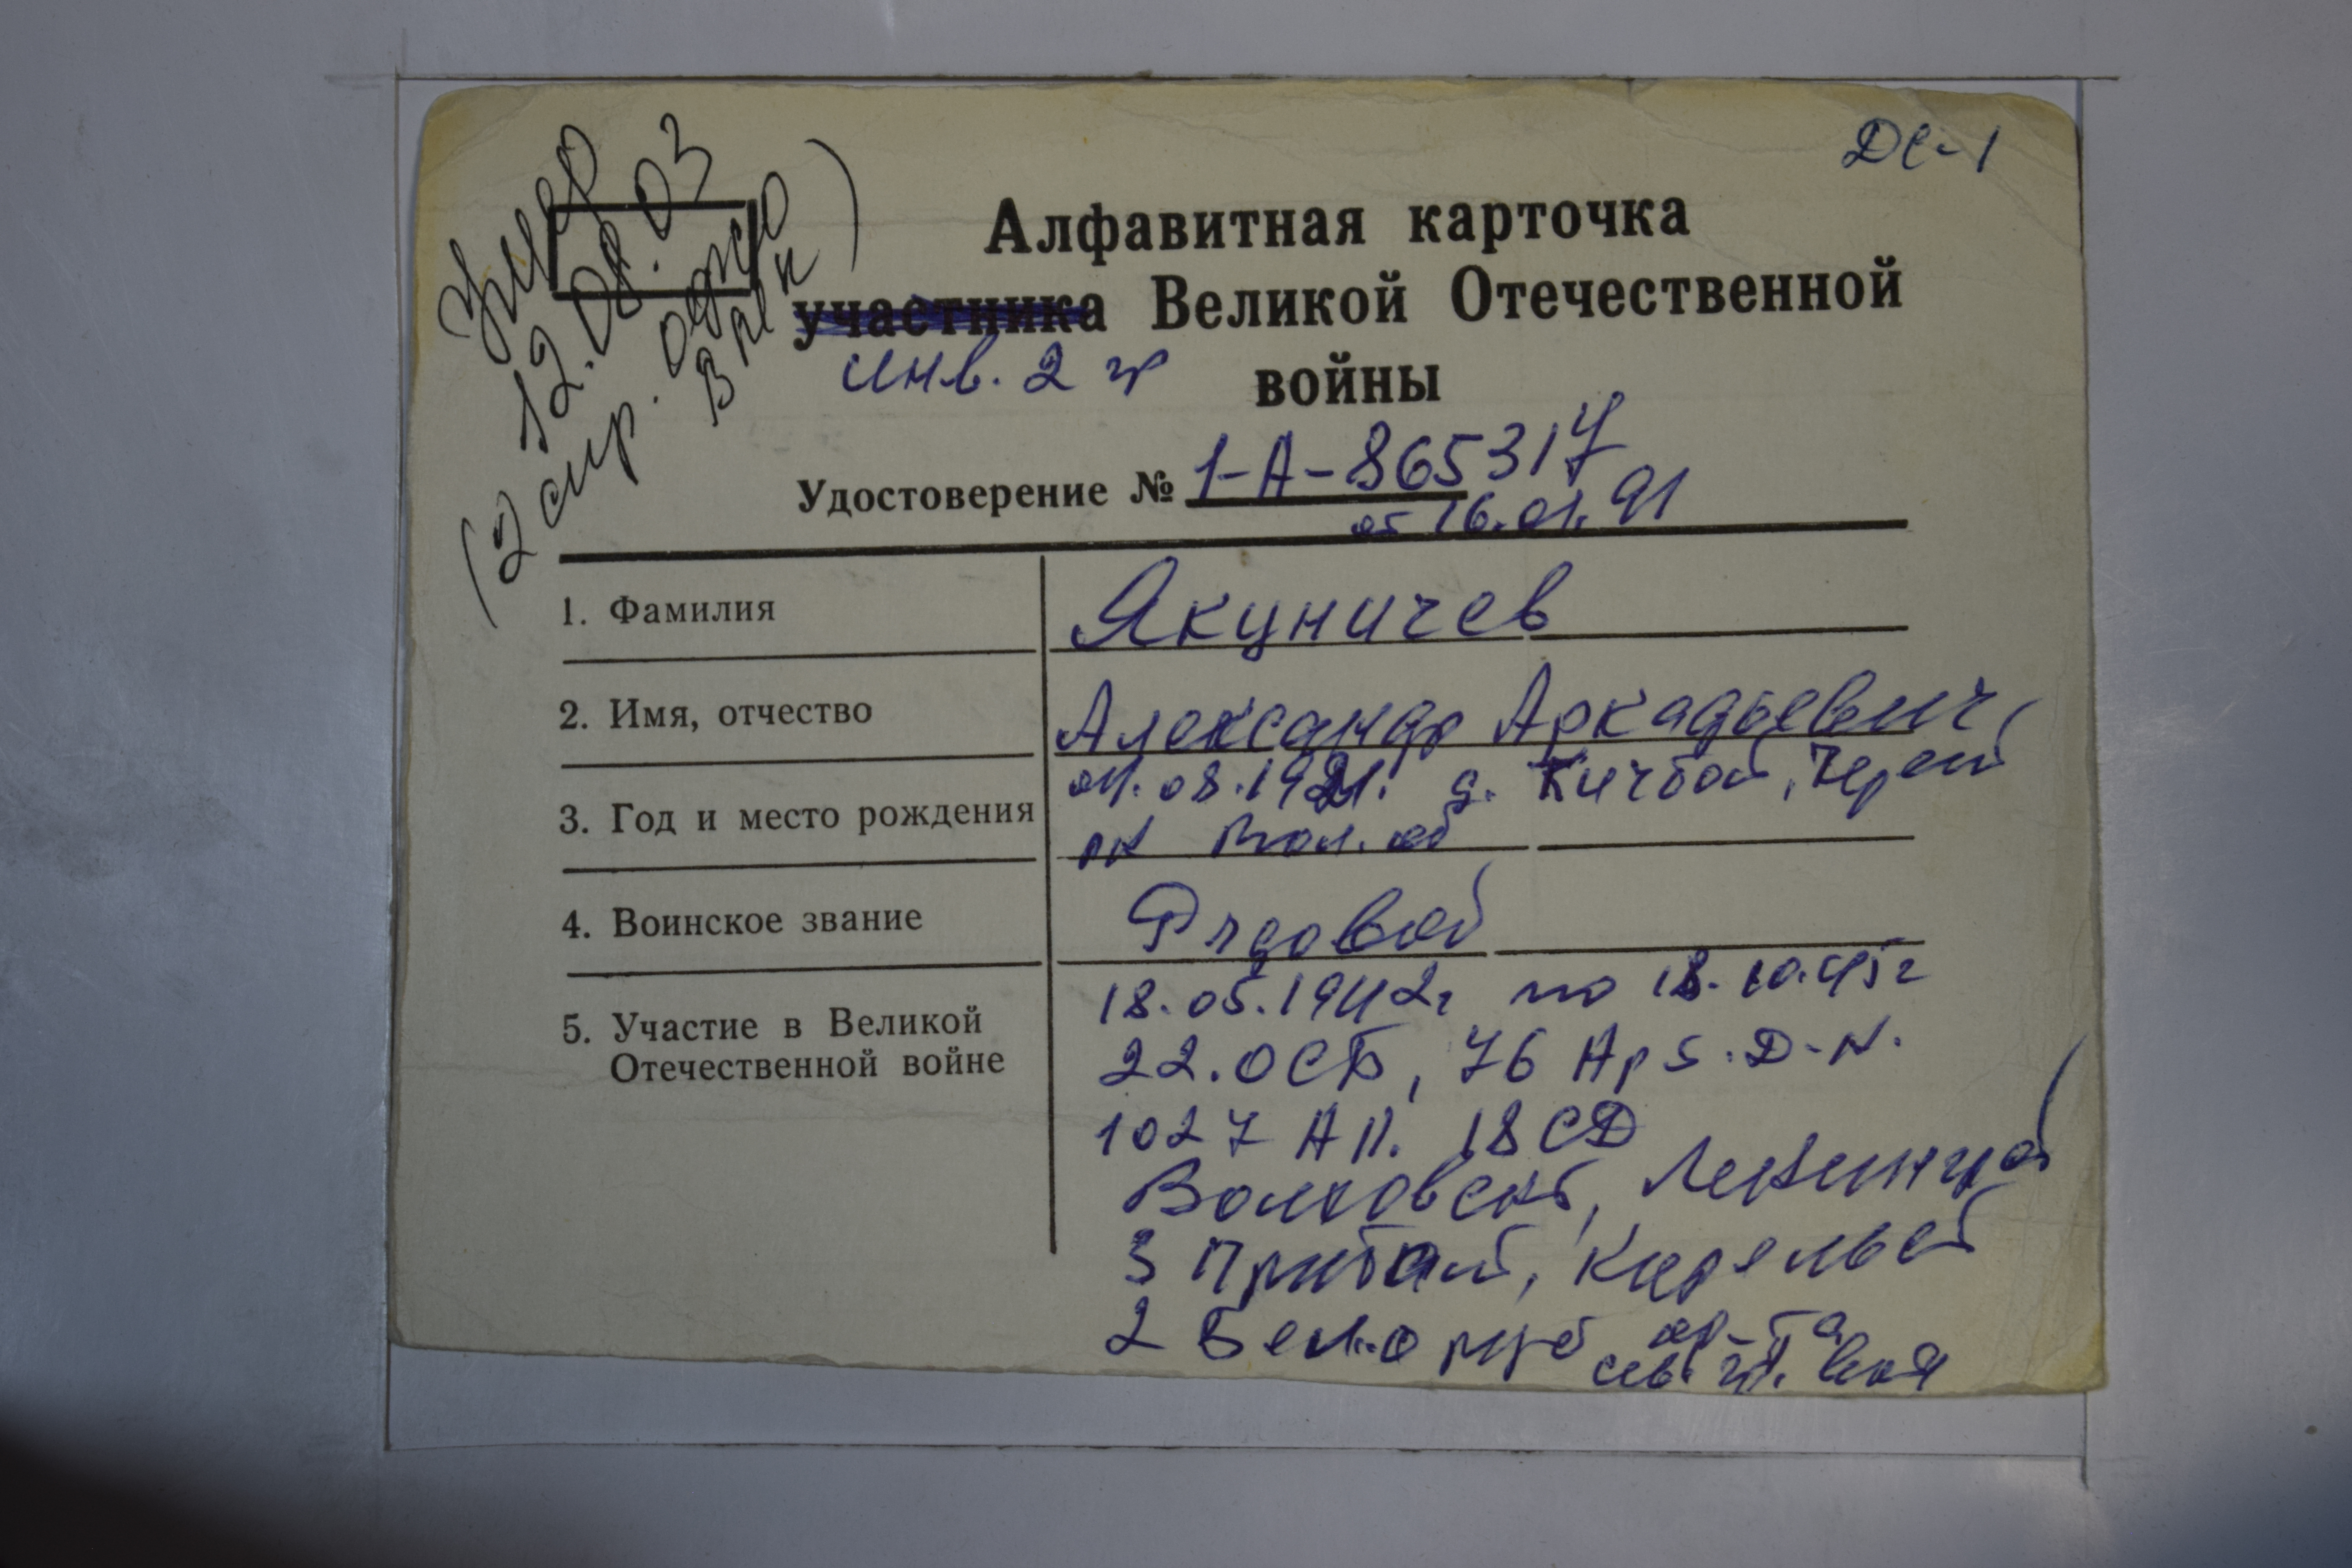 ДС-1
Умер
12.08.03
(2 спр. одно
в рвк)
Алфавитная карточка
участника Великой Отечественной
инв. 2 гр
войны
Удостоверение № 1-А-865317
от 16.01.91
1. Фамилия
Якуничев
2. Имя, отчество
Александр Аркадьевич
3. Год и место рождения
08.1921. д. Черепов
рн Вол. об
4. Воинское звание
Рядовой
5. Участие в Великой
Отечественной войне
18.05.1942г по 18.10.45г
22.ОСБ, 76 Д-Н.
1027 АП. 18 СД
Волховский, Ленингр
3 Прибалт, Карельс
2 Белорус